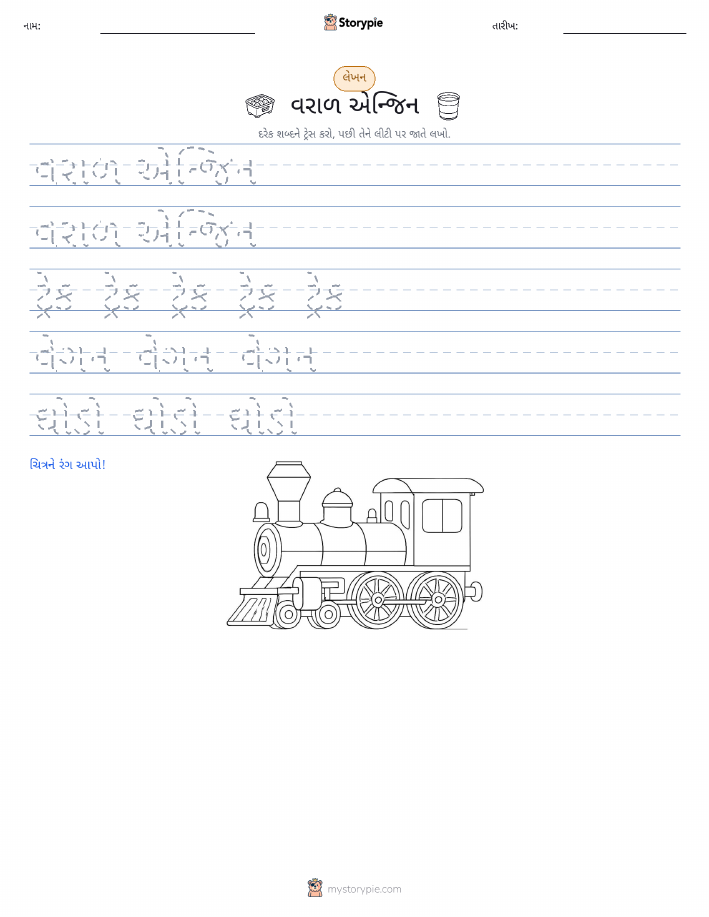 નામ:
Storypie
તારીખ:
લેખન
વરાળ એન્જિન
દરેક શબ્દને ટ્રેસ કરો, પછી તેને લીટી પર જાતે લખો.
વરાળ એન્જિન
વરાળ એન્જિન
ટ્રેક ટ્રેક ટ્રેક ટ્રેક ટ્રેક
વેગન વેગન વેગન
ઘોડો ઘોડો ઘોડો
ચિત્રને રંગ આપો!
mystorypie.com